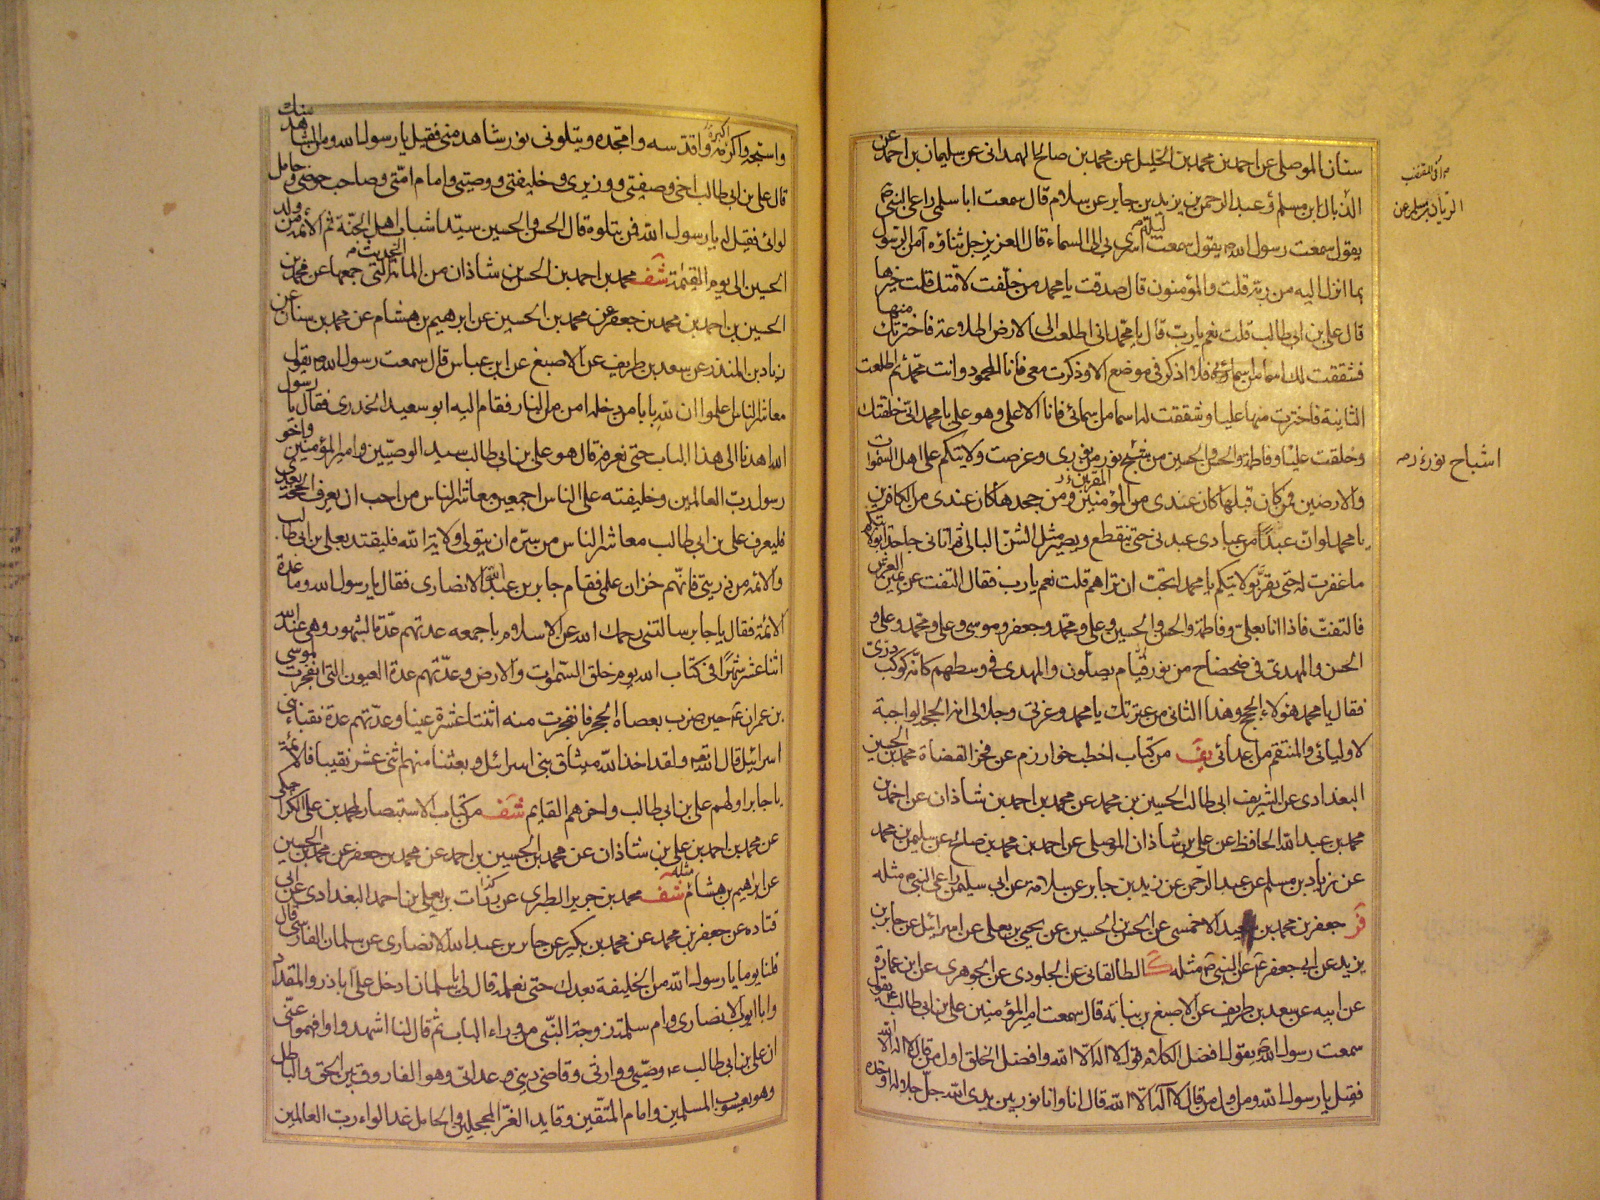 سنان الموصلي عن احمد بن محمد بن الخليل عن محمد بن صالح الهمداني عن سليمان بن احمد عن
الذيال بن مسلم و عبد الرحمن بن يزيد بن جابر عن سلام قال سمعت ابا سلمى راعي النبي ص
يقول سمعت رسول الله ص يقول سمعت ليلة اسري بي الى السماء قال العزيز جل ثناؤه آمن الرسول
بما انزل اليه من ربه قلت والمؤمنون قال صدقت يا محمد من خلفت لامتك قلت خيرها
قال علي بن ابي طالب قلت نعم يا رب قال يا محمد اني اطلعت الى الارض اطلاعة فاخترتك منها
فشققت لك اسما من اسمائي فلا اذكر في موضع الا وذكرت معي فانا المحمود وانت محمد ثم اطلعت
الثانية فاخترت منها عليا وشققت له اسما من اسمائي فانا الاعلى وهو علي يا محمد اني خلقتك
وخلقت عليا وفاطمة والحسن والحسين من شبح نور من نوري وعرضت ولايتكم على اهل السموات
والارضين فمن كان قبلها كان عندي من المؤمنين ومن جحدها كان عندي من الكافرين
يا محمد لو ان عبدا من عبادي عبدني حتى ينقطع ويصير مثل الشن البالي ثم اتاني جاحدا لولايتكم
ما غفرت له حتى يقر بولايتكم يا محمد اتحب ان تراهم قلت نعم يا رب فقال التفت عن يمين العرش
فالتفت فاذا انا بعلي وفاطمة والحسن والحسين وعلي ومحمد وجعفر وموسى وعلي ومحمد وعلي و
الحسن والمهدي في ضحضاح من نور قيام يصلون والمهدي في وسطهم كانه كوكب دري
فقال يا محمد هؤلاء الحجج وهذا الثائر من عترتك يا محمد وعزتي وجلالي انه الحجة الواجبة
لاوليائي والمنتقم من اعدائي يف من كتاب اخطب خوارزم عن فخر القضاة محمد بن الحسين
البغدادي عن الشريف ابي طالب الحسين بن محمد عن محمد بن احمد بن شاذان عن احمد بن
محمد بن عبد الله الحافظ عن علي بن شاذان الموصلي عن احمد بن محمد بن صالح عن سليمن بن محمد
عن زياد بن مسلم عن عبد الرحمن عن زيد بن جابر عن سلامة عن ابي سليمن راعي النبي ص مثله
فر جعفر بن محمد بن سعيد الاحمسي عن الحسن بن الحسين عن يحيى بن يعلى عن اسرائيل عن جابر بن
يزيد عن ابي جعفر ع عن النبي ص مثله الطالقاني عن الجلودي عن الجوهري عن ابن عمارة
عن ابيه عن سعد بن طريف عن الاصبغ بن نباته قال سمعت امير المؤمنين علي بن ابي طالب ع يقول
سمعت رسول الله ص يقول افضل الكلام قول لا اله الا الله وافضل الخلق اول من قال لا اله الا الله
فقيل يا رسول الله ومن اول من قال لا اله الا الله قال انا وانا نور بين يدي الله جل جلاله اوحده
الريان بن مسلم عن
اشباح نور
واسبحه واكبره واقدسه وامجده ويتلوني نور شاهد مني فقيل يا رسول الله ومن الشاهد منك
قال علي بن ابي طالب اخي وصفيي ووزيري وخليفتي ووصيي وامام امتي وصاحب حوضي وحامل
لوائي فقيل له يا رسول الله فمن يتلوه قال الحسن والحسين سيدا شباب اهل الجنة ثم الائمة من ولد
الحسين الى يوم القيمة الحديث شف محمد بن احمد بن الحسن بن شاذان من المائة التي جمعها عن محمد بن
الحسين بن احمد بن محمد بن جعفر عن محمد بن الحسين عن ابرهيم بن هشام عن محمد بن سنان عن
زياد بن المنذر عن سعد بن طريف عن الاصبغ عن ابن عباس قال سمعت رسول الله ص يقول
معاشر الناس اعلموا ان لله بابا من دخله امن من النار فقام اليه ابو سعيد الخدري فقال يا رسول
الله اهدنا الى هذا الباب حتى نعرفه قال هو علي بن ابي طالب سيد الوصيين وامير المؤمنين واخو
رسول رب العالمين وخليفته على الناس اجمعين معاشر الناس من احب ان يعرف الحجة بعدي
فليعرف علي بن ابي طالب معاشر الناس من سره ان يتولى ولاية الله فليقتد بعلي بن ابي طالب
والائمة من ذريتي فانهم خزان علمي فقام جابر بن عبد الله الانصاري فقال يا رسول الله وما عدة
الائمة فقال يا جابر سالتني رحمك الله عن الاسلام باجمعه عدتهم عدة الشهور وهي عند الله
اثنا عشر شهرا في كتاب الله يوم خلق السموات والارض وعدتهم عدة العيون التي انفجرت لموسى
بن عمران ع حين ضرب بعصاه الحجر فانفجرت منه اثنتا عشرة عينا وعدتهم عدة نقباء بني
اسرائيل قال الله تعالى ولقد اخذ الله ميثاق بني اسرائيل وبعثنا منهم اثني عشر نقيبا فالائمة
يا جابر اولهم علي بن ابي طالب واخرهم القايم شف من كتاب الاستبصار لمحمد بن علي الكراجكي
عن محمد بن احمد بن علي بن شاذان عن محمد بن الحسين بن احمد عن محمد بن جعفر عن محمد بن الحسين
عن ابراهيم بن هشام مثله شف محمد بن جرير الطبري عن زرات بن يعلى بن احمد البغدادي عن ابي
قتاده عن جعفر بن محمد عن محمد بن بكير عن جابر بن عبد الله الانصاري عن سلمان الفارسي قال
قلنا يوما يا رسول الله من الخليفة بعدك حتى نعلمه قال لي يا سلمان ادخل علي اباذر والمقداد
وابا ايوب الانصاري وام سلمة زوجة النبي من وراء الباب ثم قال لنا اشهدوا وافهموا عني
ان علي بن ابي طالب ع وصيي ووارثي وقاضي ديني وعداتي وهو الفاروق بين الحق والباطل
وهو يعسوب المسلمين وامام المتقين وقايد الغر المحجلين والحامل غدا لواء رب العالمين